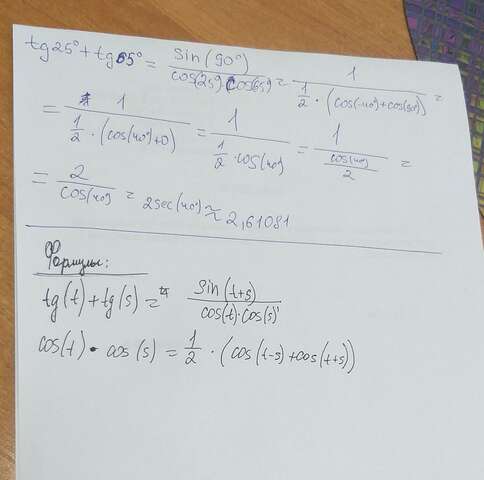 tg25° + tg65° = sin(90°) / cos(25)·cos(65) = 1 / 1/2 · (cos(-40)+cos(90°)) =
= 1 / 1/2 · (cos(40°)+0) = 1 / 1/2 · cos(40) = 1 / cos(40) / 2 =
= 2 / cos(40) = 2sec(40°) ≈ 2,61081
Формулы:
tg(t) + tg(s) = sin(t+s) / cos(t)·cos(s)
cos(t) · cos(s) = 1/2 · (cos(t-s)+cos(t+s))